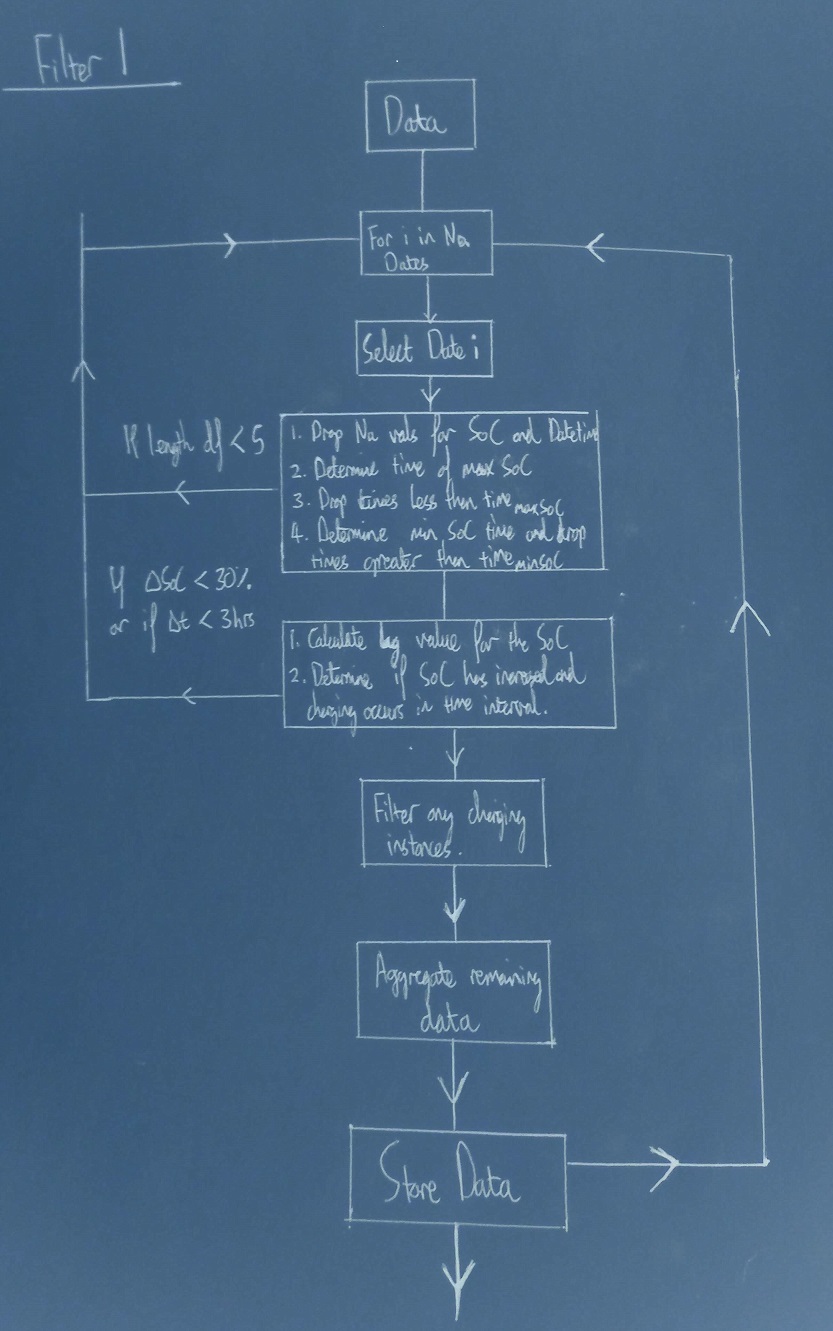 Filter 1
Data
For i in Na
Dates
Select Date i
If length df < 5
1. Drop Na vals for SoC and Datetime
2. Determine time of max SoC
3. Drop times less then time maxSoC
4. Determine min SoC time and drop
times greater then time minSoC
If ΔSoC < 30%
or if Δt < 3hrs
1. Calculate lag value for the SoC
2. Determine if SoC has increased and
charging occurs in time interval.
Filter any charging
instances.
Aggregate remaining
data
Store Data